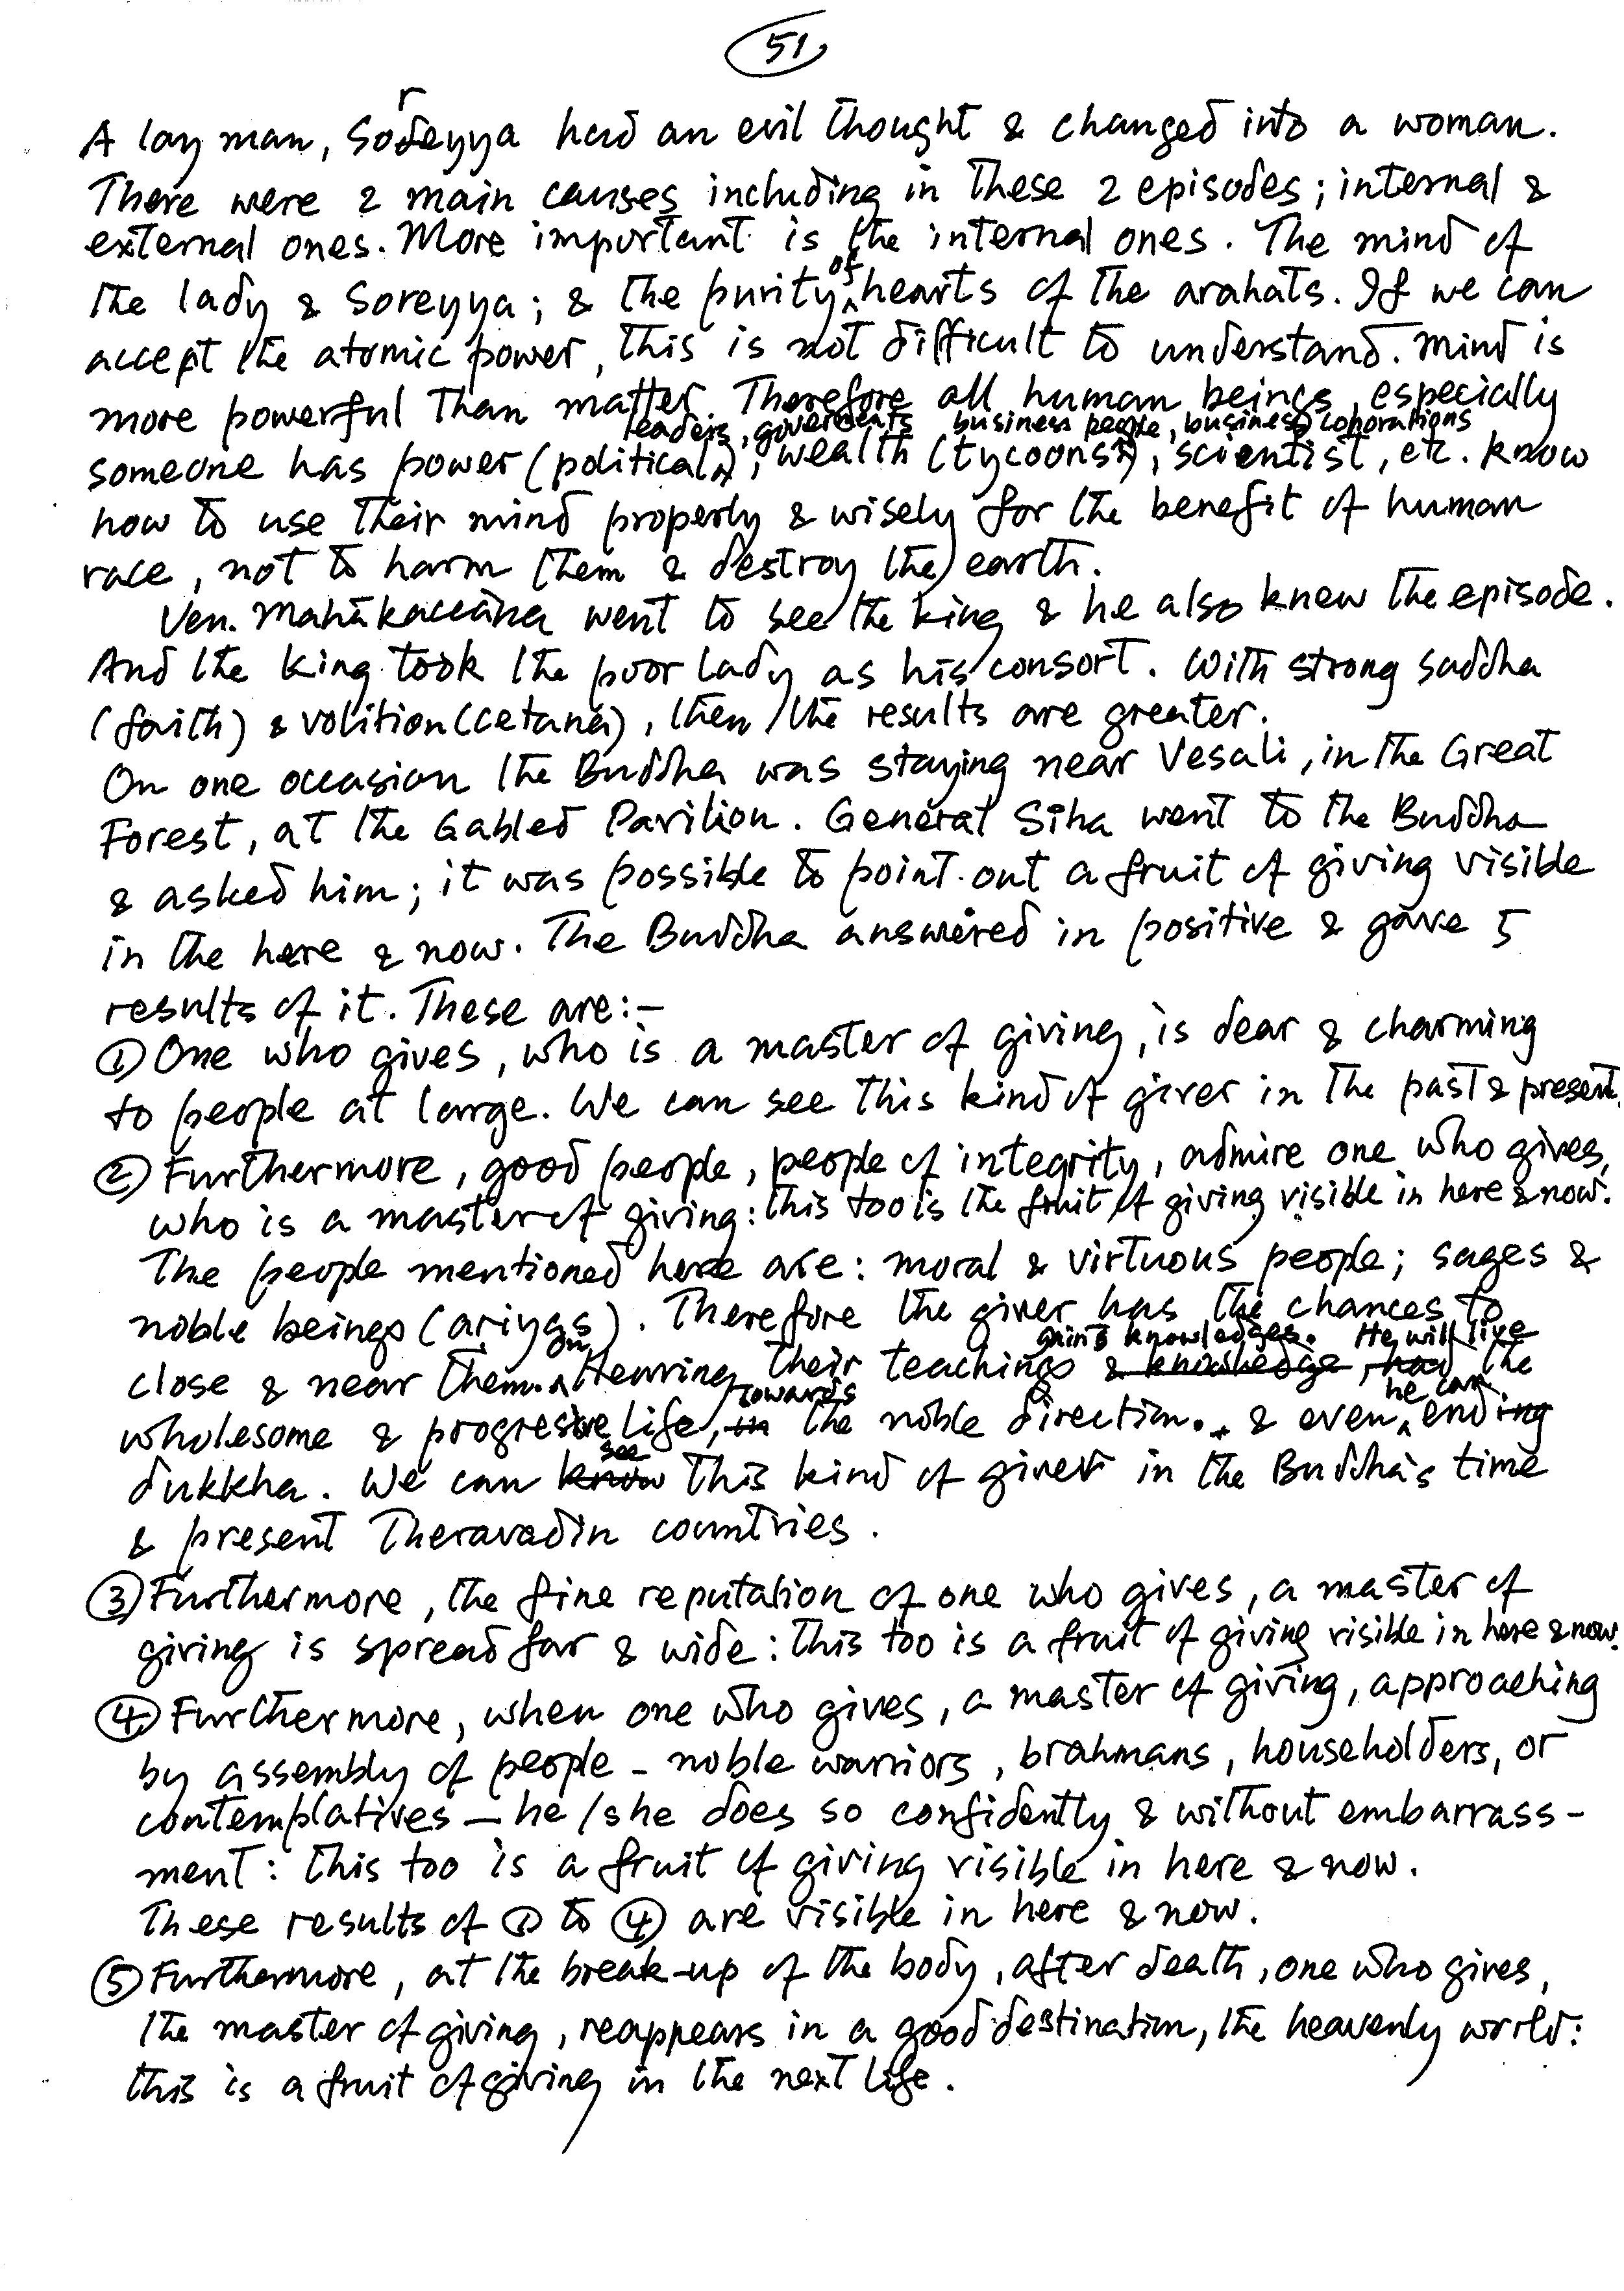 51
A lay man, Soreyya had an evil thought & changed into a woman.
There were 2 main causes including in these 2 episodes; internal &
external ones. More important is the internal ones. The mind of
the lady & Soreyya; & the purity of hearts of the arahats. If we can
accept the atomic power, this is not difficult to understand. Mind is
more powerful than matter. Therefore all human beings, especially
someone has power (political leaders, goverments), wealth (tycoons, business people, business coporations), scientist, etc. know
how to use their mind properly & wisely for the benefit of human
race, not to harm them & destroy the earth.
Ven. Mahākaccāna went to see the king & he also knew the episode.
And the king took the poor lady as his consort. With strong saddha
(faith) & volition (cetanā), then the results are greater.
On one occasion the Buddha was staying near Vesali, in the Great
Forest, at the Gabled Pavilion. General Siha went to the Buddha
& asked him; it was possible to point out a fruit of giving visible
in the here & now. The Buddha answered in positive & gave 5
results of it. These are:—
① One who gives, who is a master of giving, is dear & charming
to people at large. We can see this kind of giver in the past & present.
② Furthermore, good people, people of integrity, admire one who gives,
who is a master of giving: this too is the fruit of giving visible in here & now.
The people mentioned here are: moral & virtuous people; sages &
noble beings (ariyas). Therefore the giver has the chances to
close & near them. On Hearing their teachings & gains knowledges. He will live the
wholesome & progresive life, towards the noble direction. & even he can end
dukkha. We can see this kind of giver in the Buddha's time
& present Theravadin countries.
③ Furthermore, the fine reputation of one who gives, a master of
giving is spread far & wide: this too is a fruit of giving visible in here & now.
④ Furthermore, when one who gives, a master of giving, approaching
by assembly of people – noble warriors, brahmans, householders, or
contemplatives — he/she does so confidently & without embarrass-
ment: this too is a fruit of giving visible in here & now.
These results of ① to ④ are visible in here & now.
⑤ Furthermore, at the break-up of the body, after death, one who gives,
the master of giving, reappears in a good destination, the heavenly world:
this is a fruit of giving in the next life.